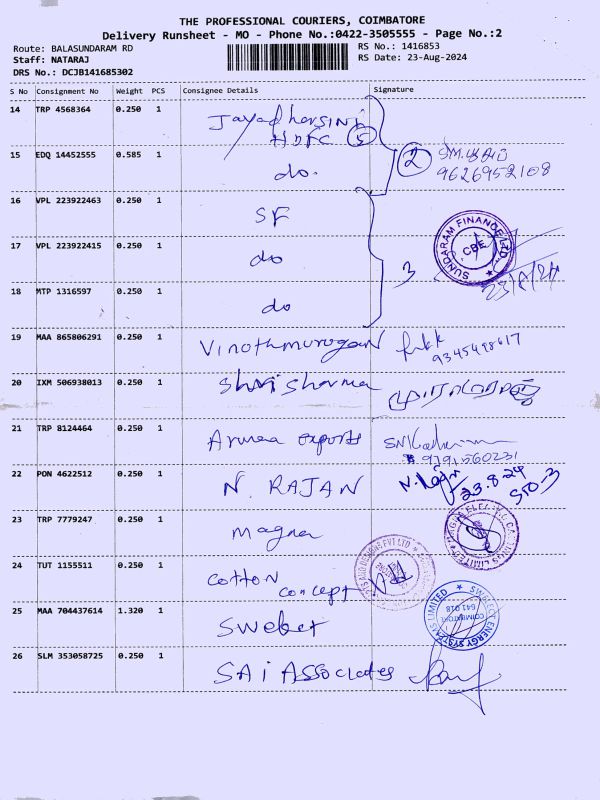 THE PROFESSIONAL COURIERS, COIMBATORE
Delivery Runsheet - MO - Phone No.:0422-3505555 - Page No.:2
Route: BALASUNDARAM RD
RS No.: 1416853
Staff: NATARAJ
RS Date: 23-Aug-2024
DRS No.: DCJB141685302
S No Consignment No Weight PCS Consignee Details Signature
14 TRP 4568364 0.250 1 Jayadharsini
HDFC 5
15 EDQ 14452555 0.585 1 do. 2
9626952108
16 VPL 223922463 0.250 1 SF
17 VPL 223922415 0.250 1 do 3
SUNDARAM FINANCE LTD. CBE
23/8/24
18 MTP 1316597 0.250 1 do
19 MAA 865806291 0.250 1 Vinothmurogan
9345498617
20 IXM 506938013 0.250 1 Shri Sharma
21 TRP 8124464 0.250 1 exports
9791560231
22 PON 4622512 0.250 1 N. RAJAN N. Rajan
23.8.24
23 TRP 7779247 0.250 1 magna
24 TUT 1155511 0.250 1 cotton
concept
25 MAA 704437614 1.320 1 Swebet
SWELECT ENERGY SYSTEMS LIMITED COIMBATORE 641 018
26 SLM 353058725 0.250 1 SAi Associates